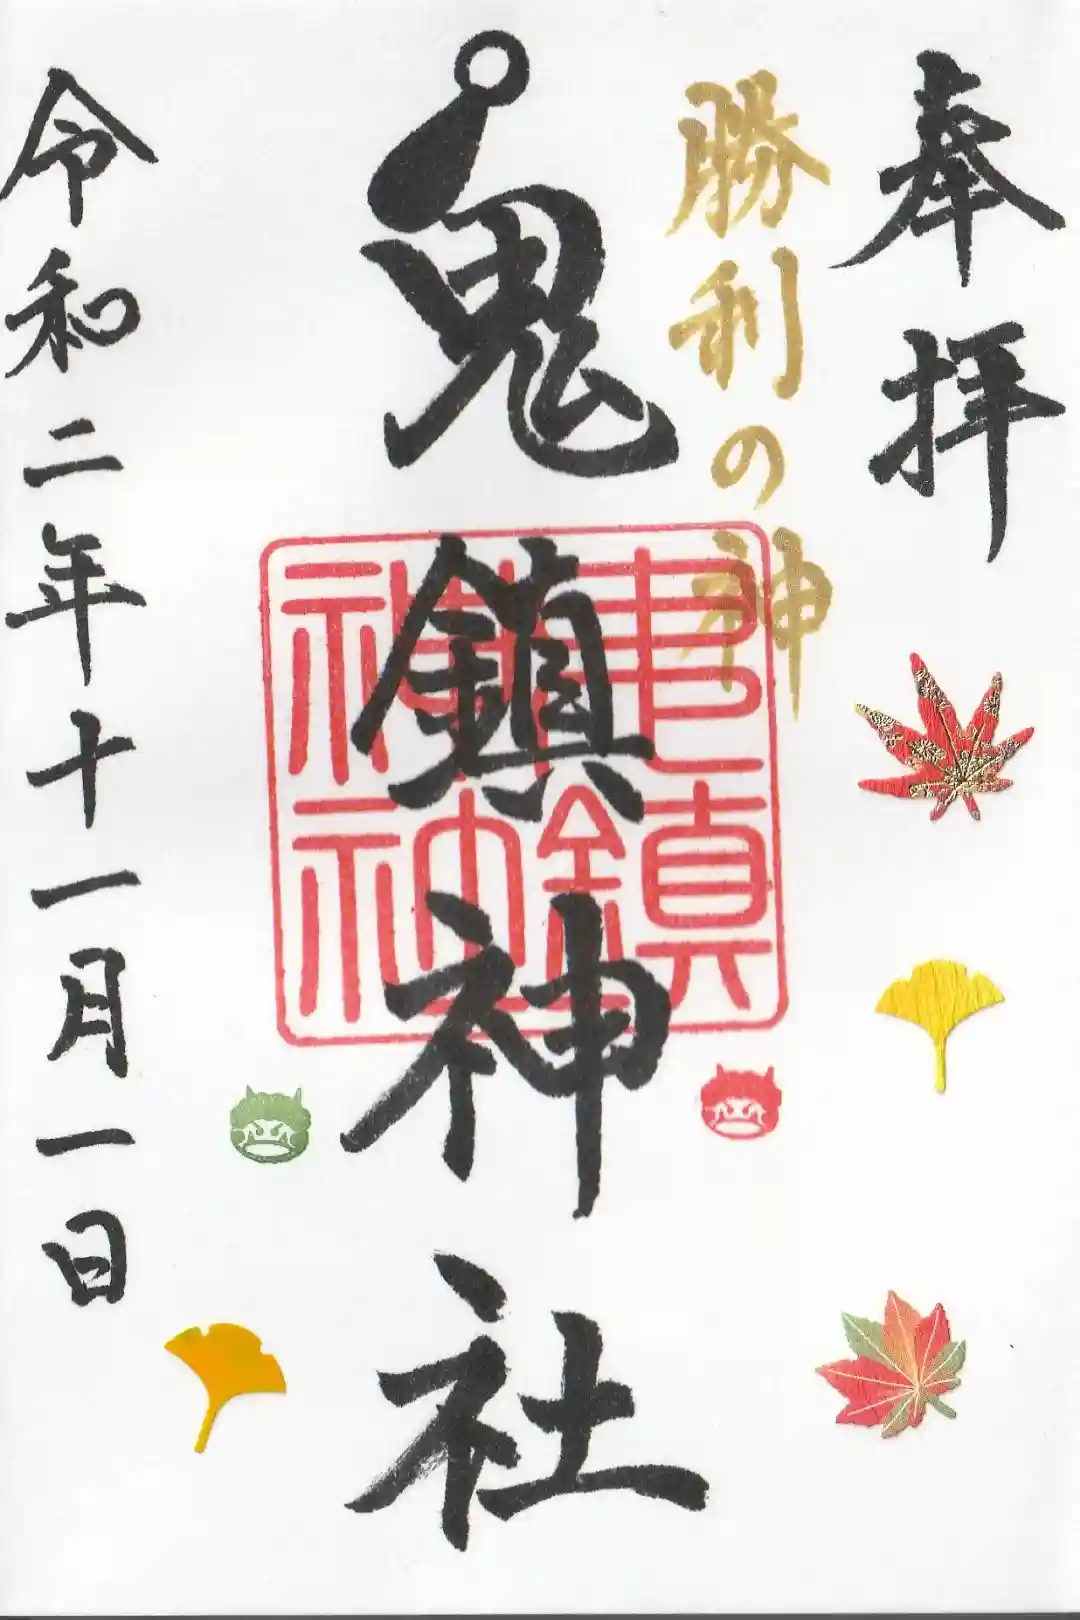 奉拝
勝利の神
鬼鎮神社
令和二年十一月一日